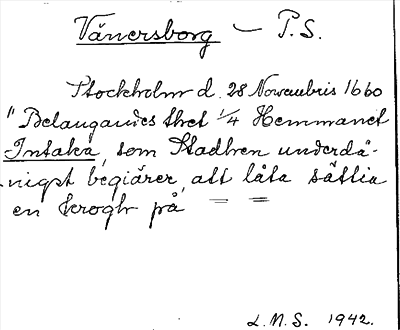 Vänersborg — P.S.
Stockholm d. 28 Novembris 1660
"Belangandes thet 1/4 Hemmanet
Intaka, som Stadhen underdå-
nigst begiärer, att låta sättia
en krogh på — —
L.M.S. 1942.